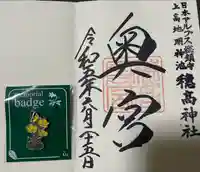 日本アルプス総鎮守
上高地 明神池
穂高神社
奥宮
令和五年六月二十五日
badge